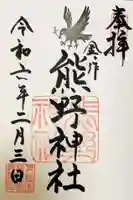 奉拝
金作
熊野神社
令和六年二月三日